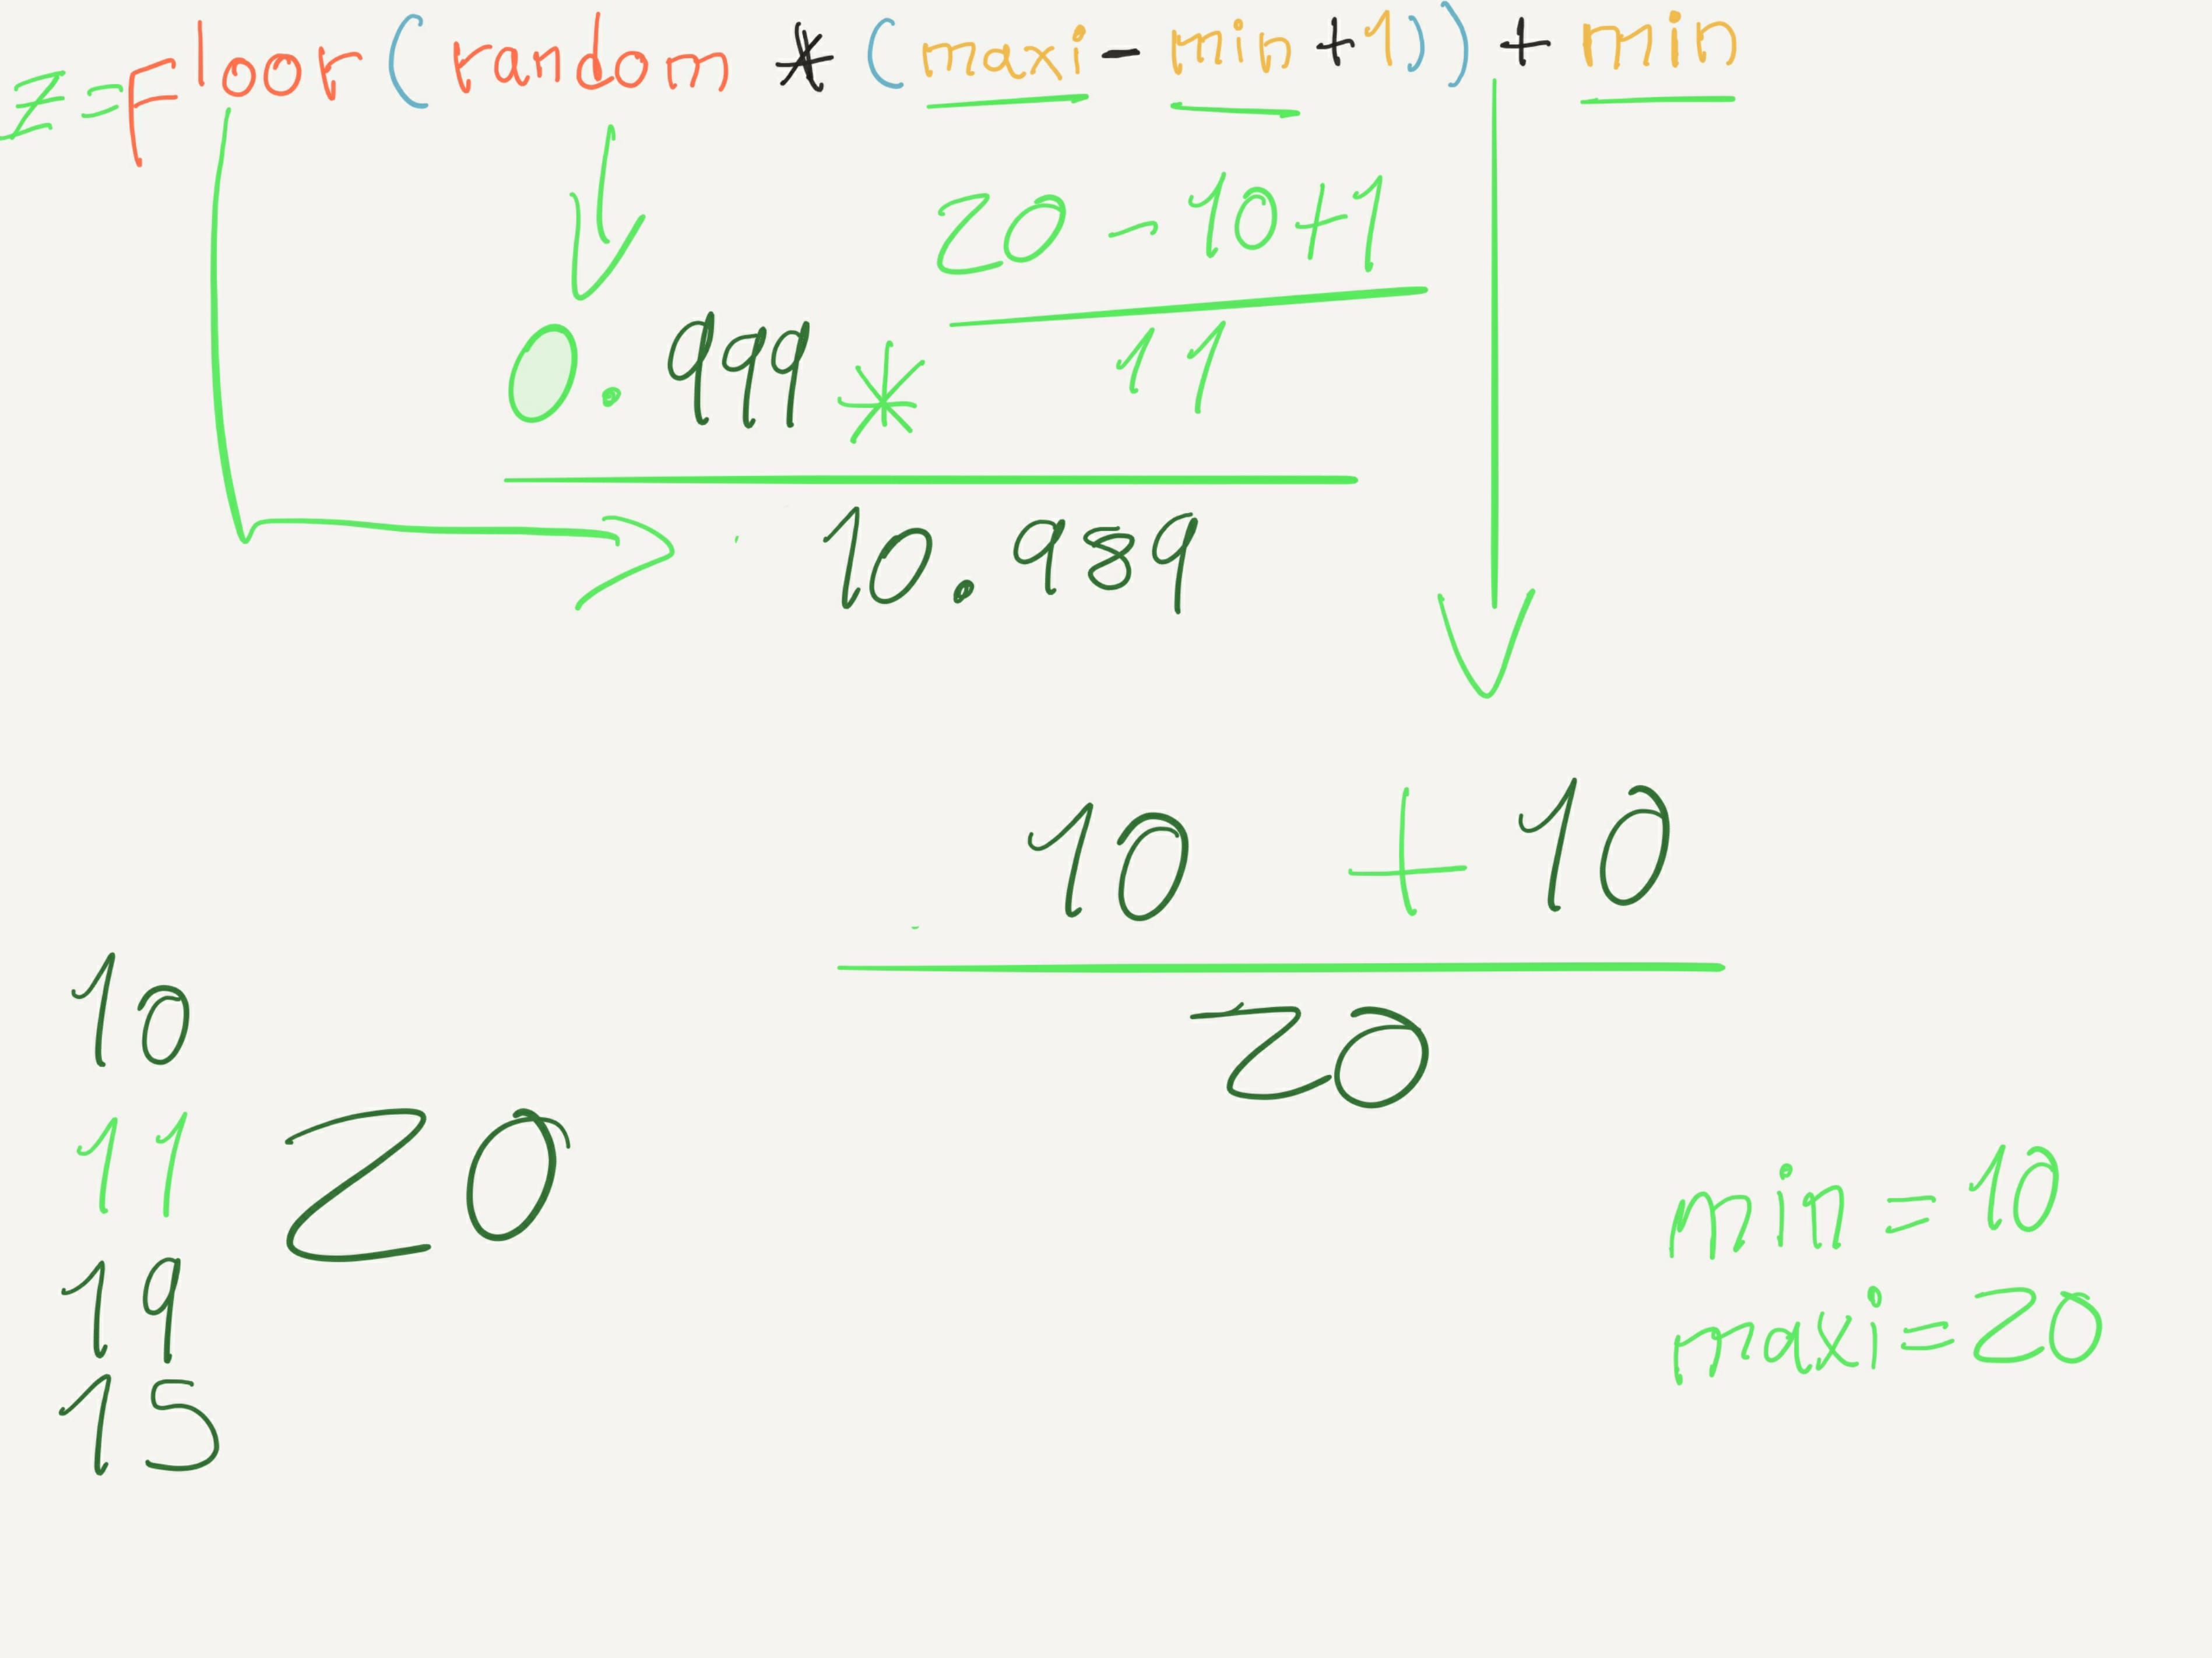 z=Floor(random * (maxi - min +1)) + min
20 - 10+1
0.999 * 11
10.989
10 + 10
20
10
11 20
19
15
min = 10
maxi = 20